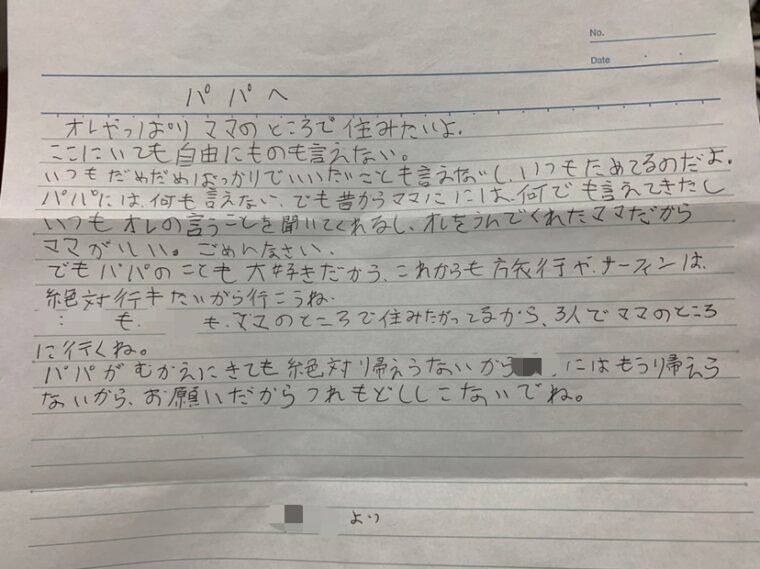 No.
Date
パパへ
オレやっぱり ママのところで住みたいよ.
ここにいても自由にものも言えない。
いつもだめだめばっかりでいいたいことも言えないし、いつもためてるのだよ.
パパには、何も言えない、でも昔からママには、何でも言えてきたし
いつもオレの言うことを聞いてくれるし、オレをうんでくれたママだから
ママがいい。ごめんなさい.
でもパパのことも大好きだから、これからも旅行や、サーフィンは、
絶対行きたいから行こうね.
も. も、ママのところで住みたがってるから、3人でママのところ
に行くね。
パパがむかえにきても絶対帰えらないから 、にはもう帰えら
ないから、お願いだからつれもどしにこないでね。
より